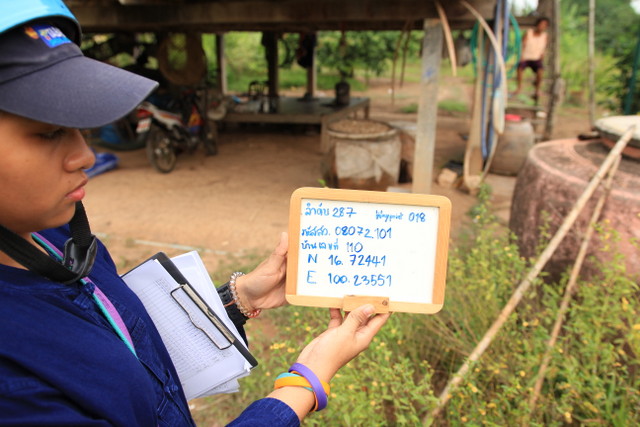 ลำดับ 287 Waypoint 018
รหัสสถ. 08072101
บ้านเลขที่ 110
N 16.72441
E 100.23551